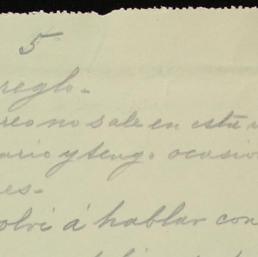 5
reglo.-
reo no sale en esta
ario y tengo ocasio
es.-
olví á hablar con